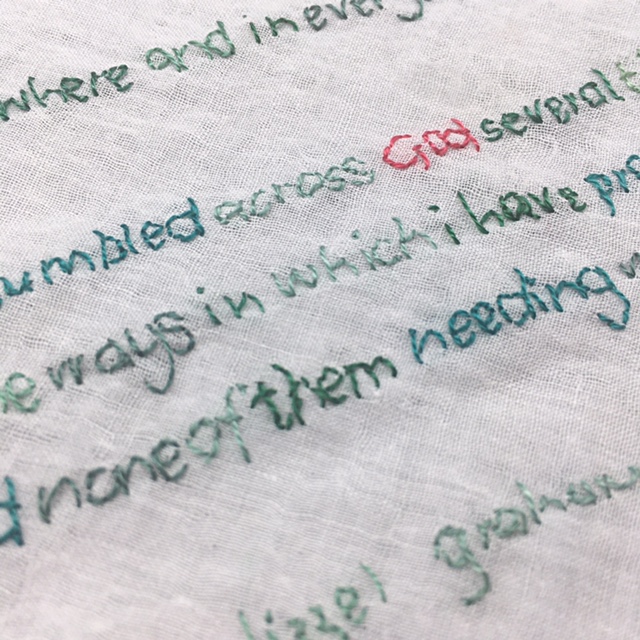 where and in every
umbled across God several
ways in which i have
none of them needing